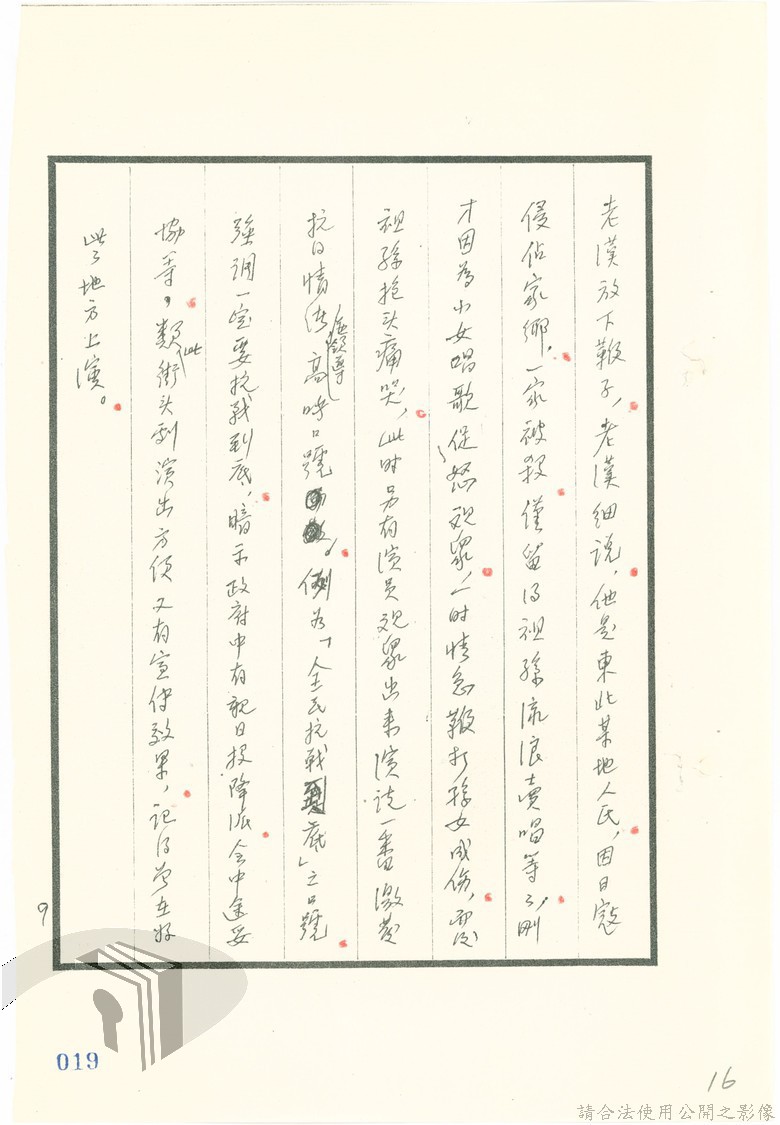 老漢放下鞭子，老漢細說，他是東北某地人民，因日寇
侵佔家鄉，一家被殺僅留得祖孫流浪賣唱等々，剛
才因為小女唱歌促怒观眾，一时情急鞭打孫女成伤，而後
祖孫抱头痛哭，此时另有演員观眾出来演说一番激发
抗日情绪帶領導高呼口號。例为「全民抗战到底」之口號
強调一定要抗战到底，暗示政府中有親日投降派会中途妥
協等。類此街头剧演出方便又有宣传効果，記得曾在好
些地方上演。
9
019
16
請合法使用公開之影像